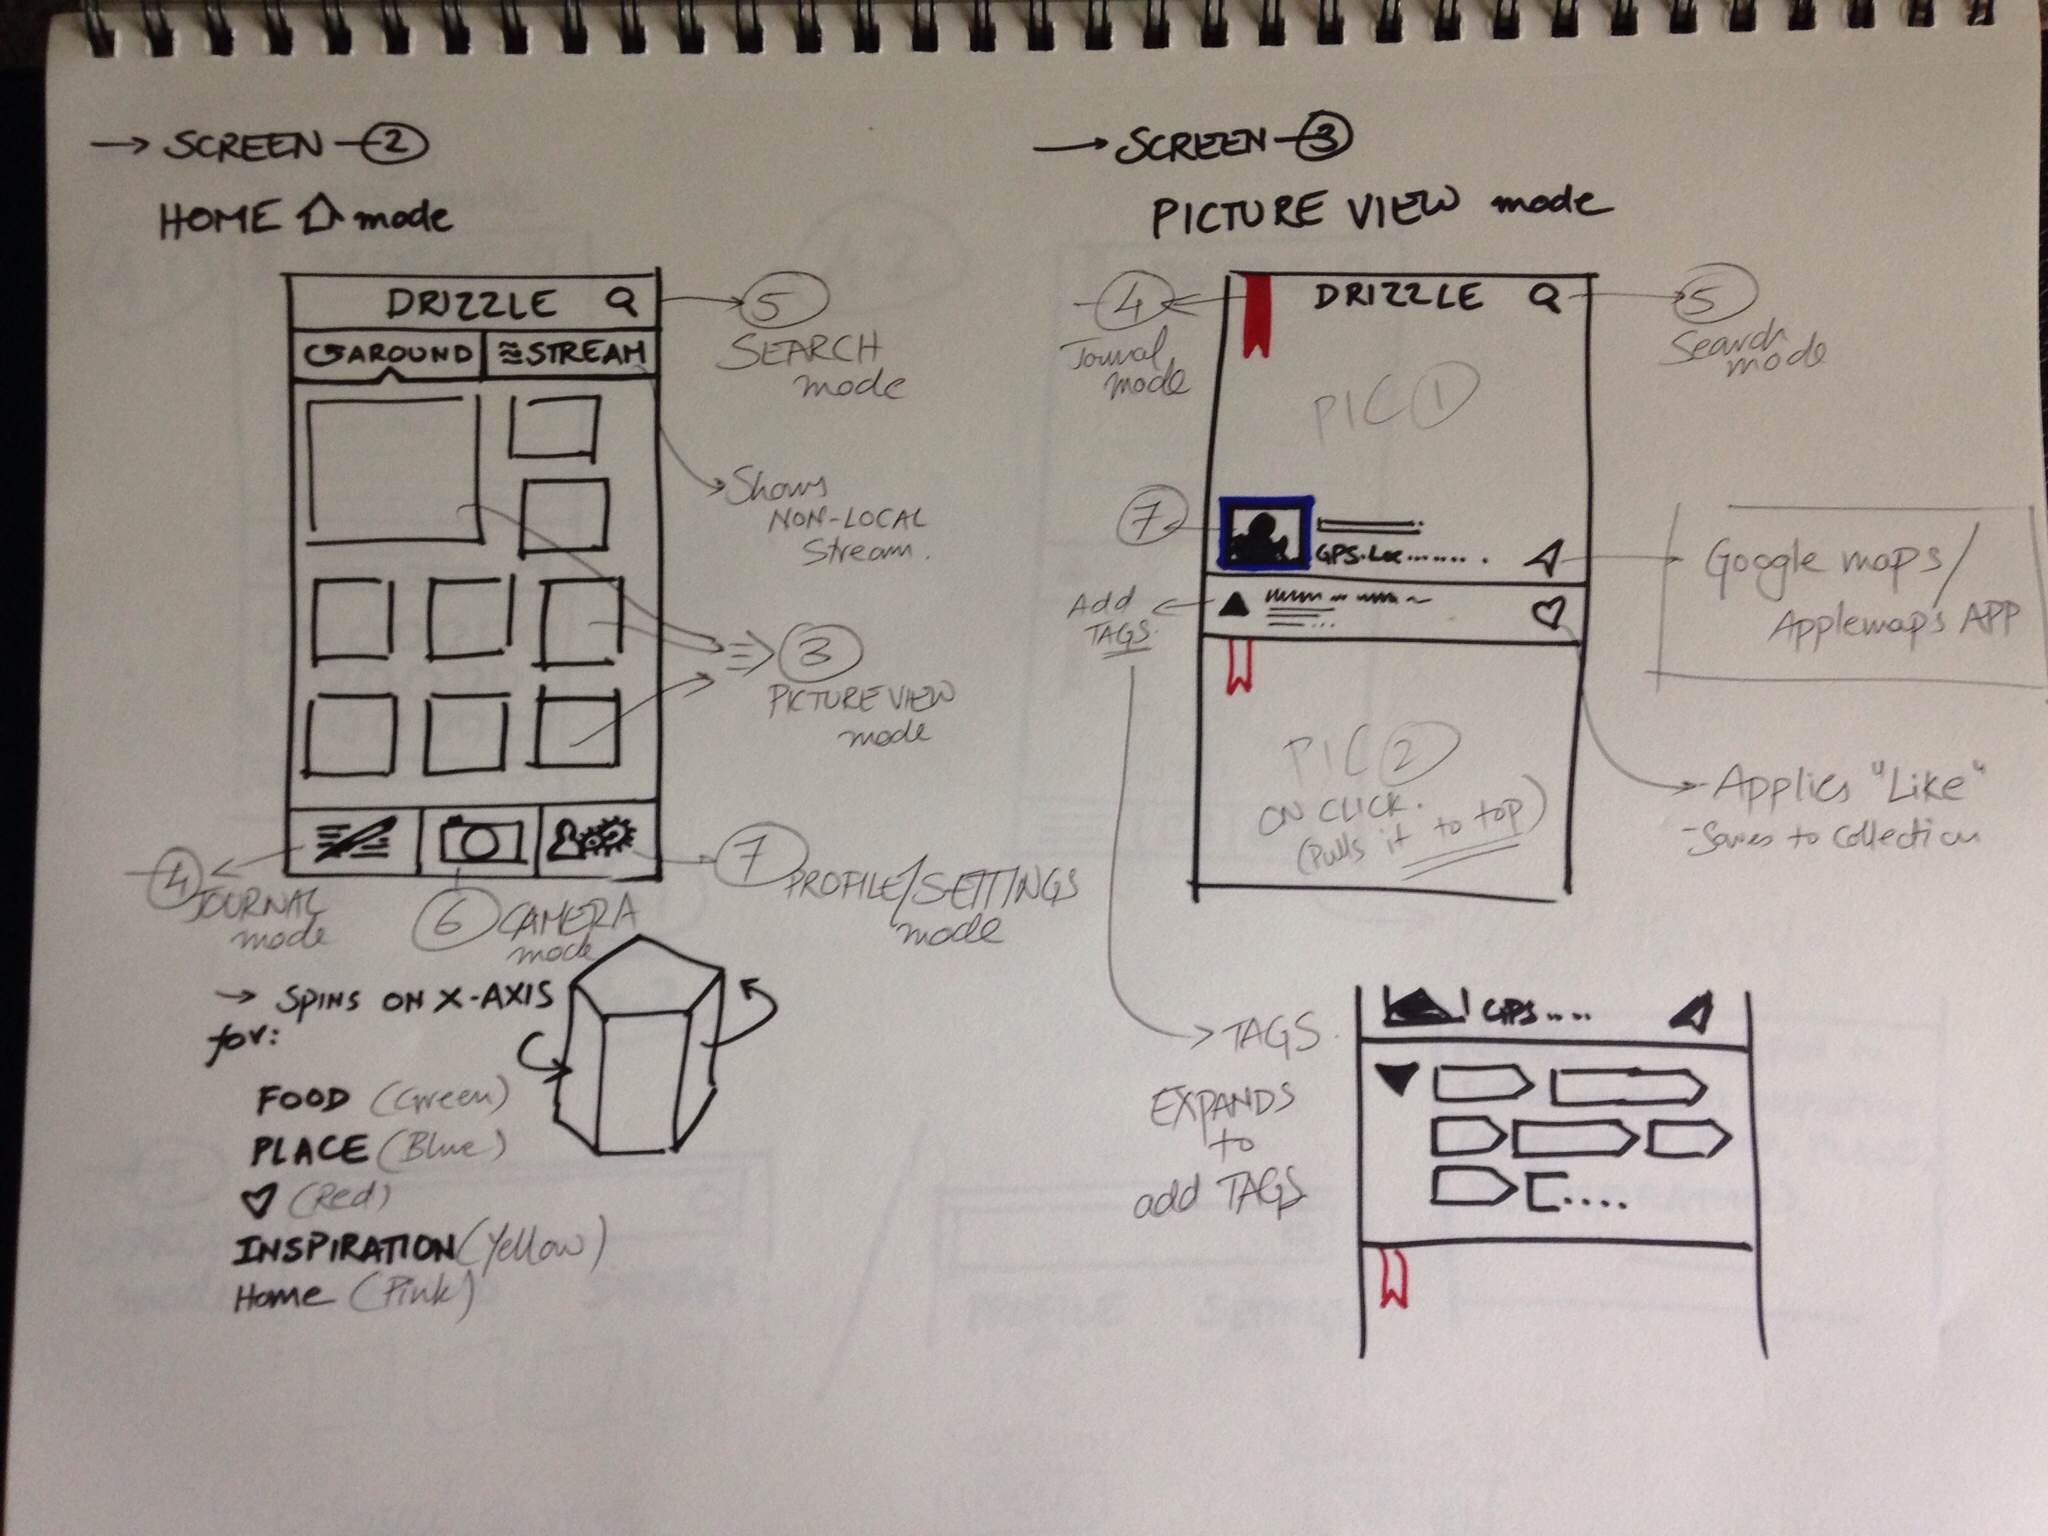 → SCREEN -②
HOME mode
DRIZZLE
AROUND
STREAM
⑤
SEARCH
mode
Shows
NON-LOCAL
Stream.
③
PICTURE VIEW
mode
④
JOURNAL
mode
⑥ CAMERA
mode
⑦ PROFILE/SETTINGS
mode
→ SPINS ON X-AXIS
for:
FOOD (Green)
PLACE (Blue)
♡ (Red)
INSPIRATION (Yellow)
Home (Pink)
→ SCREEN -③
PICTURE VIEW mode
DRIZZLE
④
Journal
mode
⑤
Search
mode
PIC ①
⑦
GPS.Loc........
Google maps/
Applemaps APP
Add
TAGS.
PIC ②
ON CLICK.
(Pulls it to top)
Applies "Like"
- Saves to Collection
TAGS.
EXPANDS
to
add TAGS
GPS....